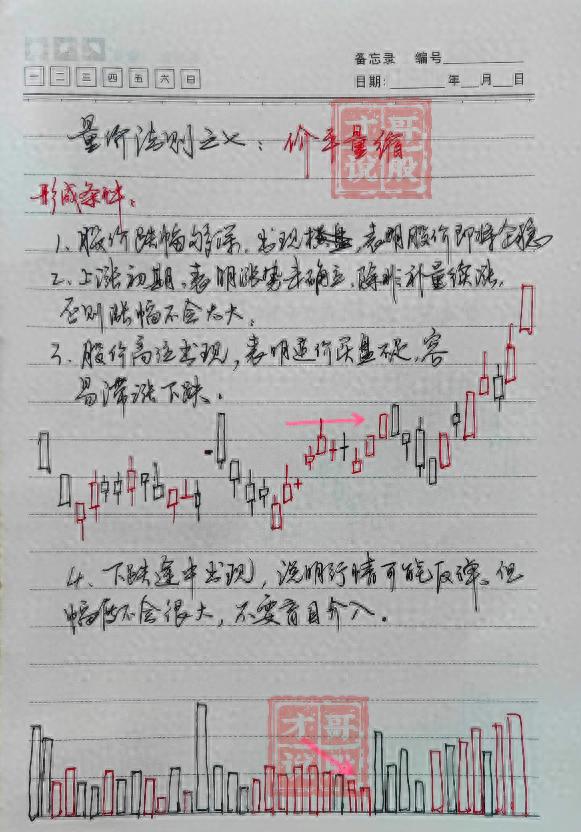 备忘录 编号
一 二 三 四 五 六 日
日期: 年 月 日
量价法则之七：价平量缩
形成条件：
1、股价跌幅够深，出现横盘，表明股价即将企稳
2、上涨初期，表明涨势未确立，除非补量续涨，
否则涨幅不会太大。
3、股价高位出现，表明追价买盘不足，容
易滞涨下跌。
4、下跌途中出现，说明行情可能反弹。但
幅度不会很大，不要盲目介入。
才哥
说股
才哥
说股